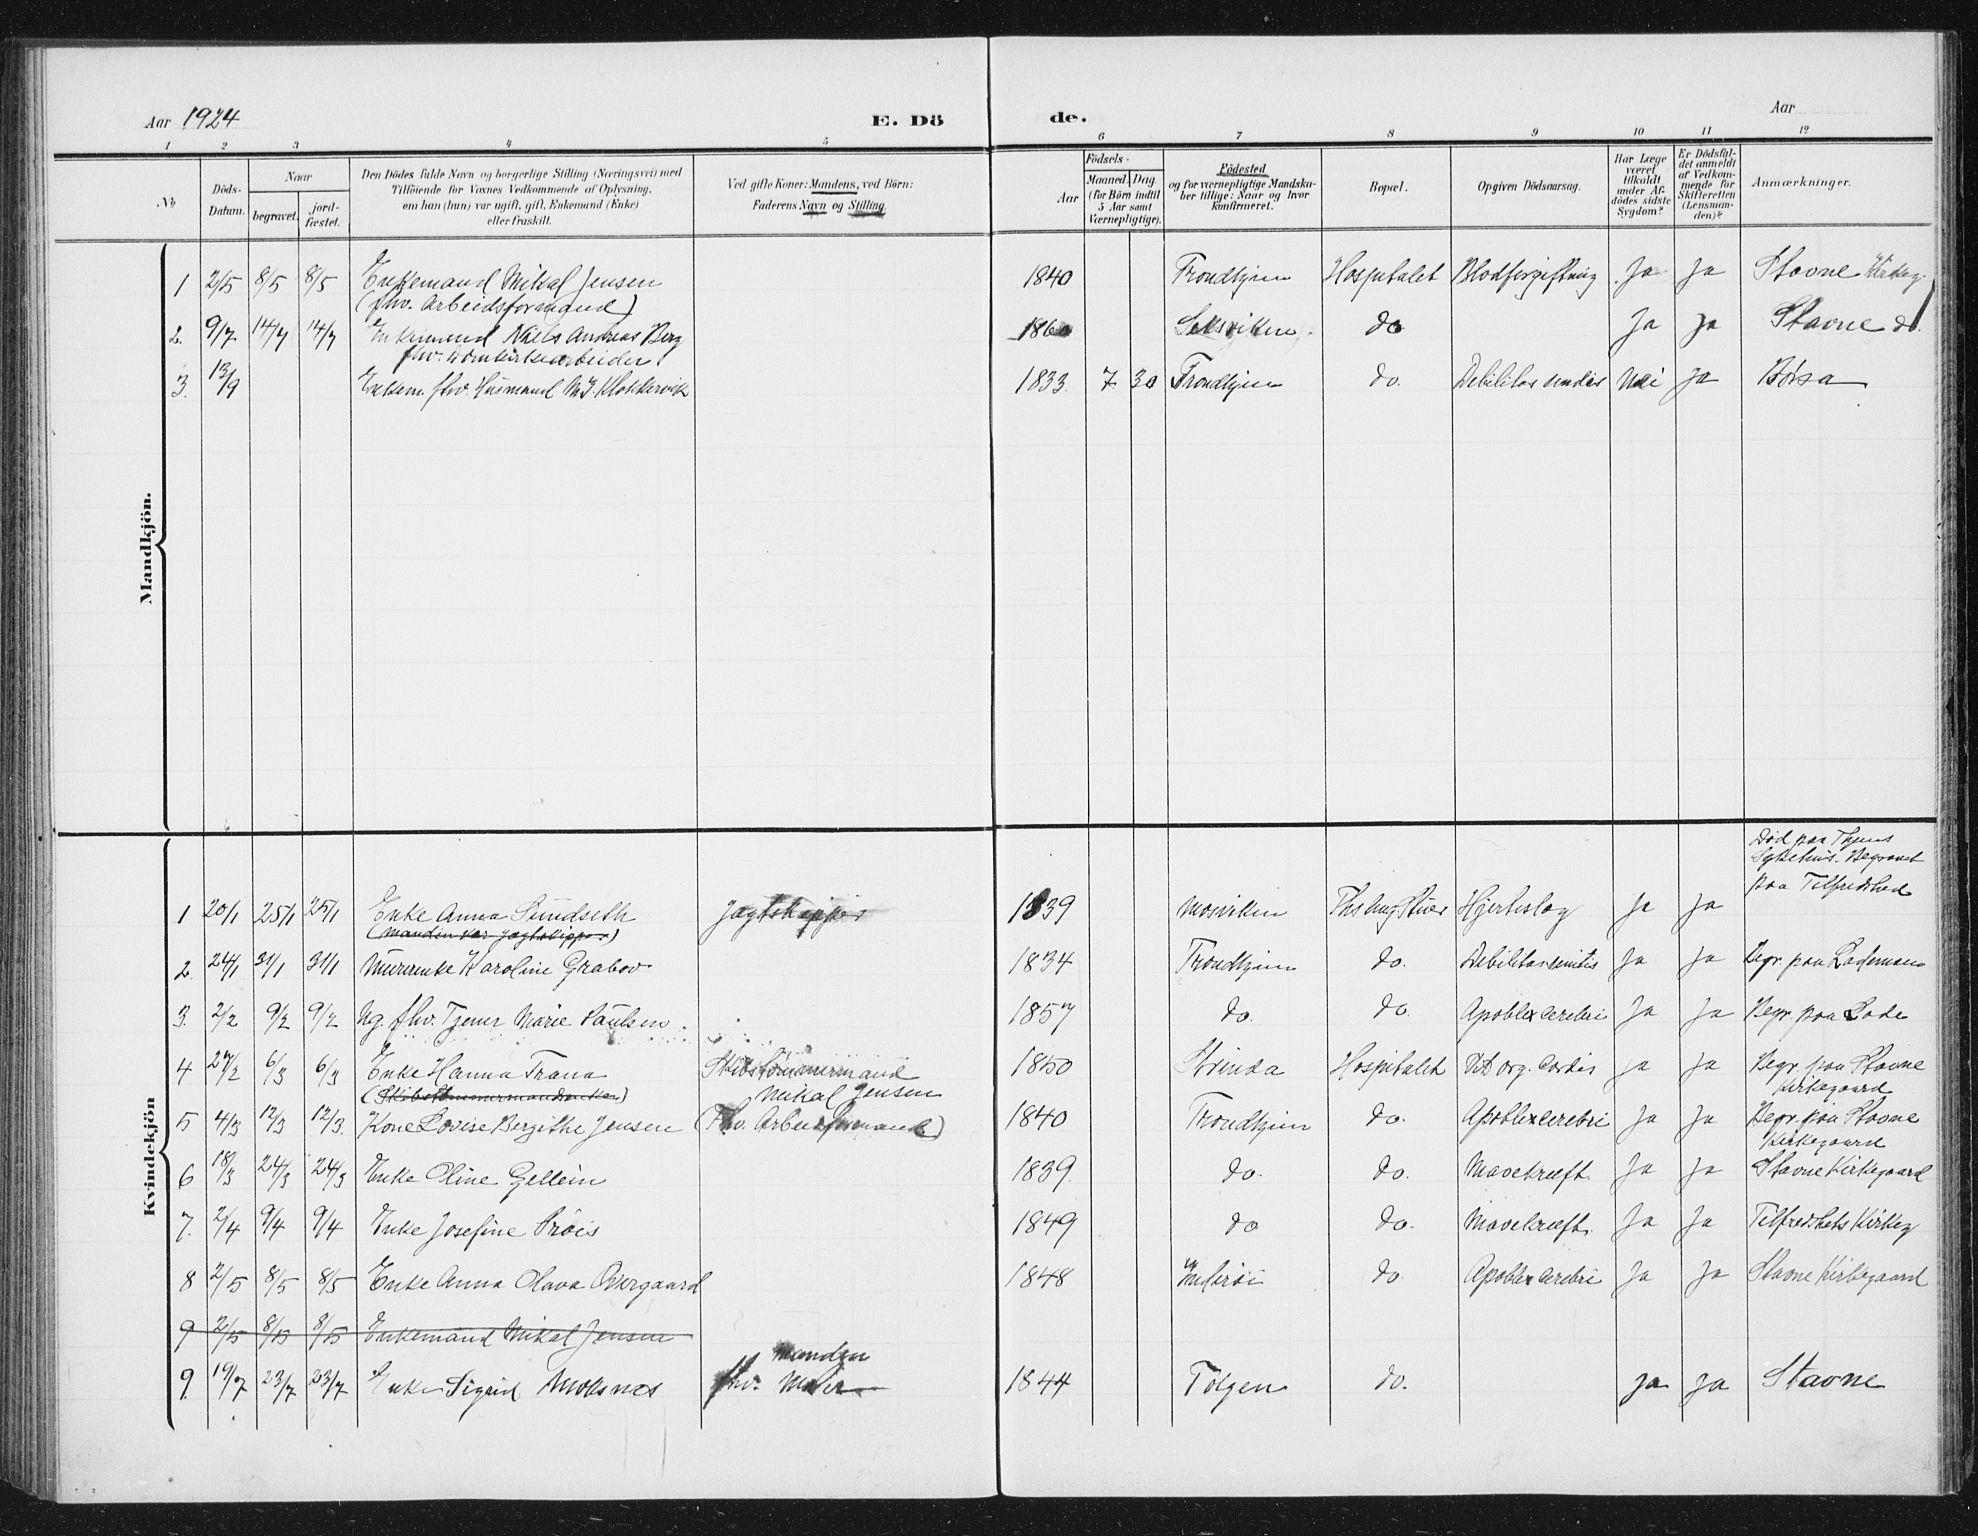 Aar 1924
E. Dö
de.
Aar
1 2 3 4 5 6 7 8 9 10 11 12
No
Döds-Datum.
Naar
begravet.
jord-fæstet.
Den Dödes fulde Navn og borgerlige Stilling (Næringsvei) med
Tilföiende for Voxnes Vedkommende af Oplysning,
om han (hun) var ugift, gift, Enkemand (Enke)
eller fraskilt.
Ved gifte Koner: Mandens, ved Börn:
Faderens Navn og Stilling.
Födsels-
Aar
Maaned. Dag
(for Börn indtil
5 Aar samt
Værnepligtige).
Födested
og for værnepligtige Mandska-
ber tillige: Naar og hvor
konfirmeret.
Bopæl.
Opgiven Dödsaarsag.
Har Læge
været
tilkaldt
under Af-
dödes sidste
Sygdom?
Er Dödsfal-
det anmeldt
af Vedkom-
mende for
Skifteretten
(Lensman-
den)?
Anmærkninger.
Mandkjön.
1 2/5 8/5 8/5 Enkemand Mikal Jensen 1840 Trondhjem Hospitalet Blodforgiftning Ja Ja Stavne Kirkeg.
(fhv. Arbeidsformand)
2. 9/7 14/7 14/7 Enkemand Niels Andreas Berg 1860 Leksviken. do Ja Ja Stavne do.
fhv. Domkirkearbeider.
3. 13/9 Enkem. fhv. Husmand M. J. Klokkervik 1833. 7 30 Trondhjem do. Debilitas senilis Nei Ja Börsa
Kvindekjön
Död paa Thjems
Sykehus. Begravet
paa Tilfredshed
1 20/1 25/1 25/1 Enke Anna Sundseth Jagtskipper 1839 Mosviken Ths Ang Stuer Hjerteslag Ja Ja
(Manden var Jagtskipper)
2. 24/1 31/1 31/1 Murerenke Karoline Grabov 1834 Trondhjem do. Debilitas senilis Ja Ja Begr. paa Lademoen
3. 2/2 9/2 9/2 Ug. fhv. Tjener Marie Paulsen. 1857 do. do. Apoblex cerebri Ja Ja Begr. paa Lade
4 27/2 6/3 6/3 Enke Hanna Trana Skibstömmermand 1850 Strinda Hospitalet Vit org. cordis Ja Ja Begr. paa Stavne
Kirkegaard
(Skibstömmermandsenke)
Mikal Jensen
5 4/3 12/3 12/3. Kone Lovise Bergithe Jensen (Fhv. Arbeidsformand) 1840 Trondhjem do. Apoblex cerebri Ja Ja Begr. paa Stavne
Kirkegaard
6 18/3 24/3 24/3 Enke Oline Gellein 1839. do. do. Mavekræft. Ja Ja Stavne Kirkegaard
7. 2/4 9/4 9/4 Enke Josefine Pröis 1849 do do. Mavekræft. Ja Ja Tilfredshets Kirkeg
8 2/5 8/5 8/5 Enke Anna Olava Overgaard 1848 Inderöi do. Apoblex cerebri Ja Ja Stavne Kirkegaard
9 2/5 8/5 8/5 Enkemand Mikal Jensen
manden
9 19/7 23/7 23/7 Enke Sigrid Moksnes fhv. Maler 1844 Tolgen do. Ja Ja Stavne